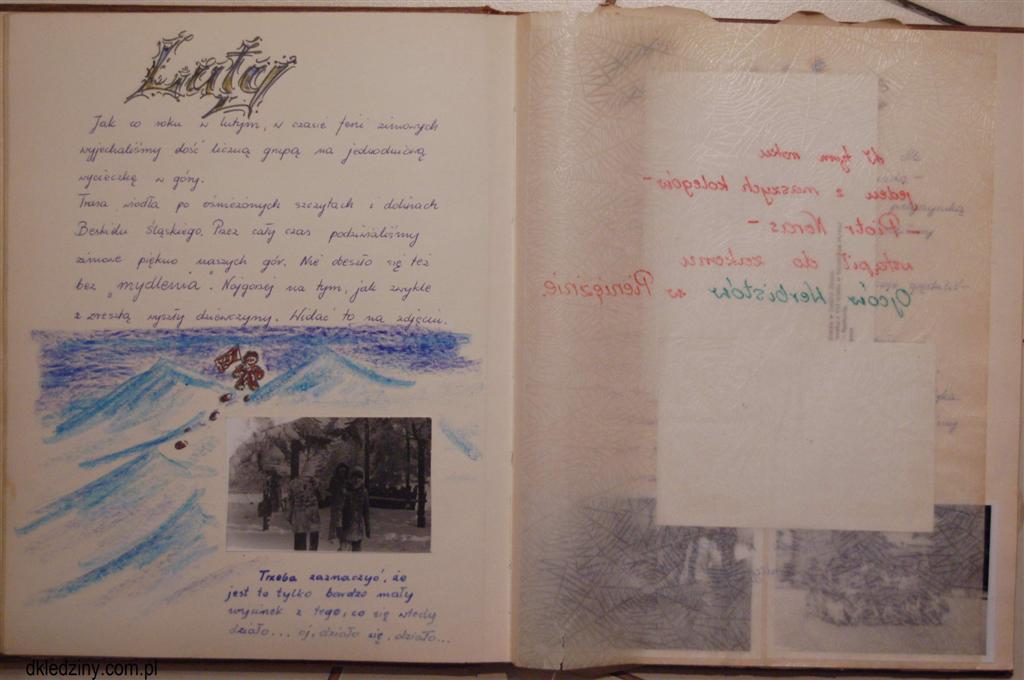 Luty
Jak co roku w lutym, w czasie ferii zimowych
wyjechaliśmy dość liczną grupą na jednodniową
wycieczkę w góry.
Trasa wiodła po ośnieżonych szczytach i dolinach
Beskidu Śląskiego. Przez cały czas podziwialiśmy
zimowe piękno naszych gór. Nie obeszło się też
bez "mydlenia". Najgorzej na tym, jak zwykle
z resztą wyszły dziewczyny. Widać to na zdjęciu.
Trzeba zaznaczyć, że
jest to tylko bardzo mały
wycinek z tego, co się wtedy
działo... oj, działo się, działo...
W tym roku
jeden z naszych kolegów -
- Piotr Noras -
wstąpił do zakonu
Ojców Werbistów w Pieniężnie.
dkledziny.com.pl